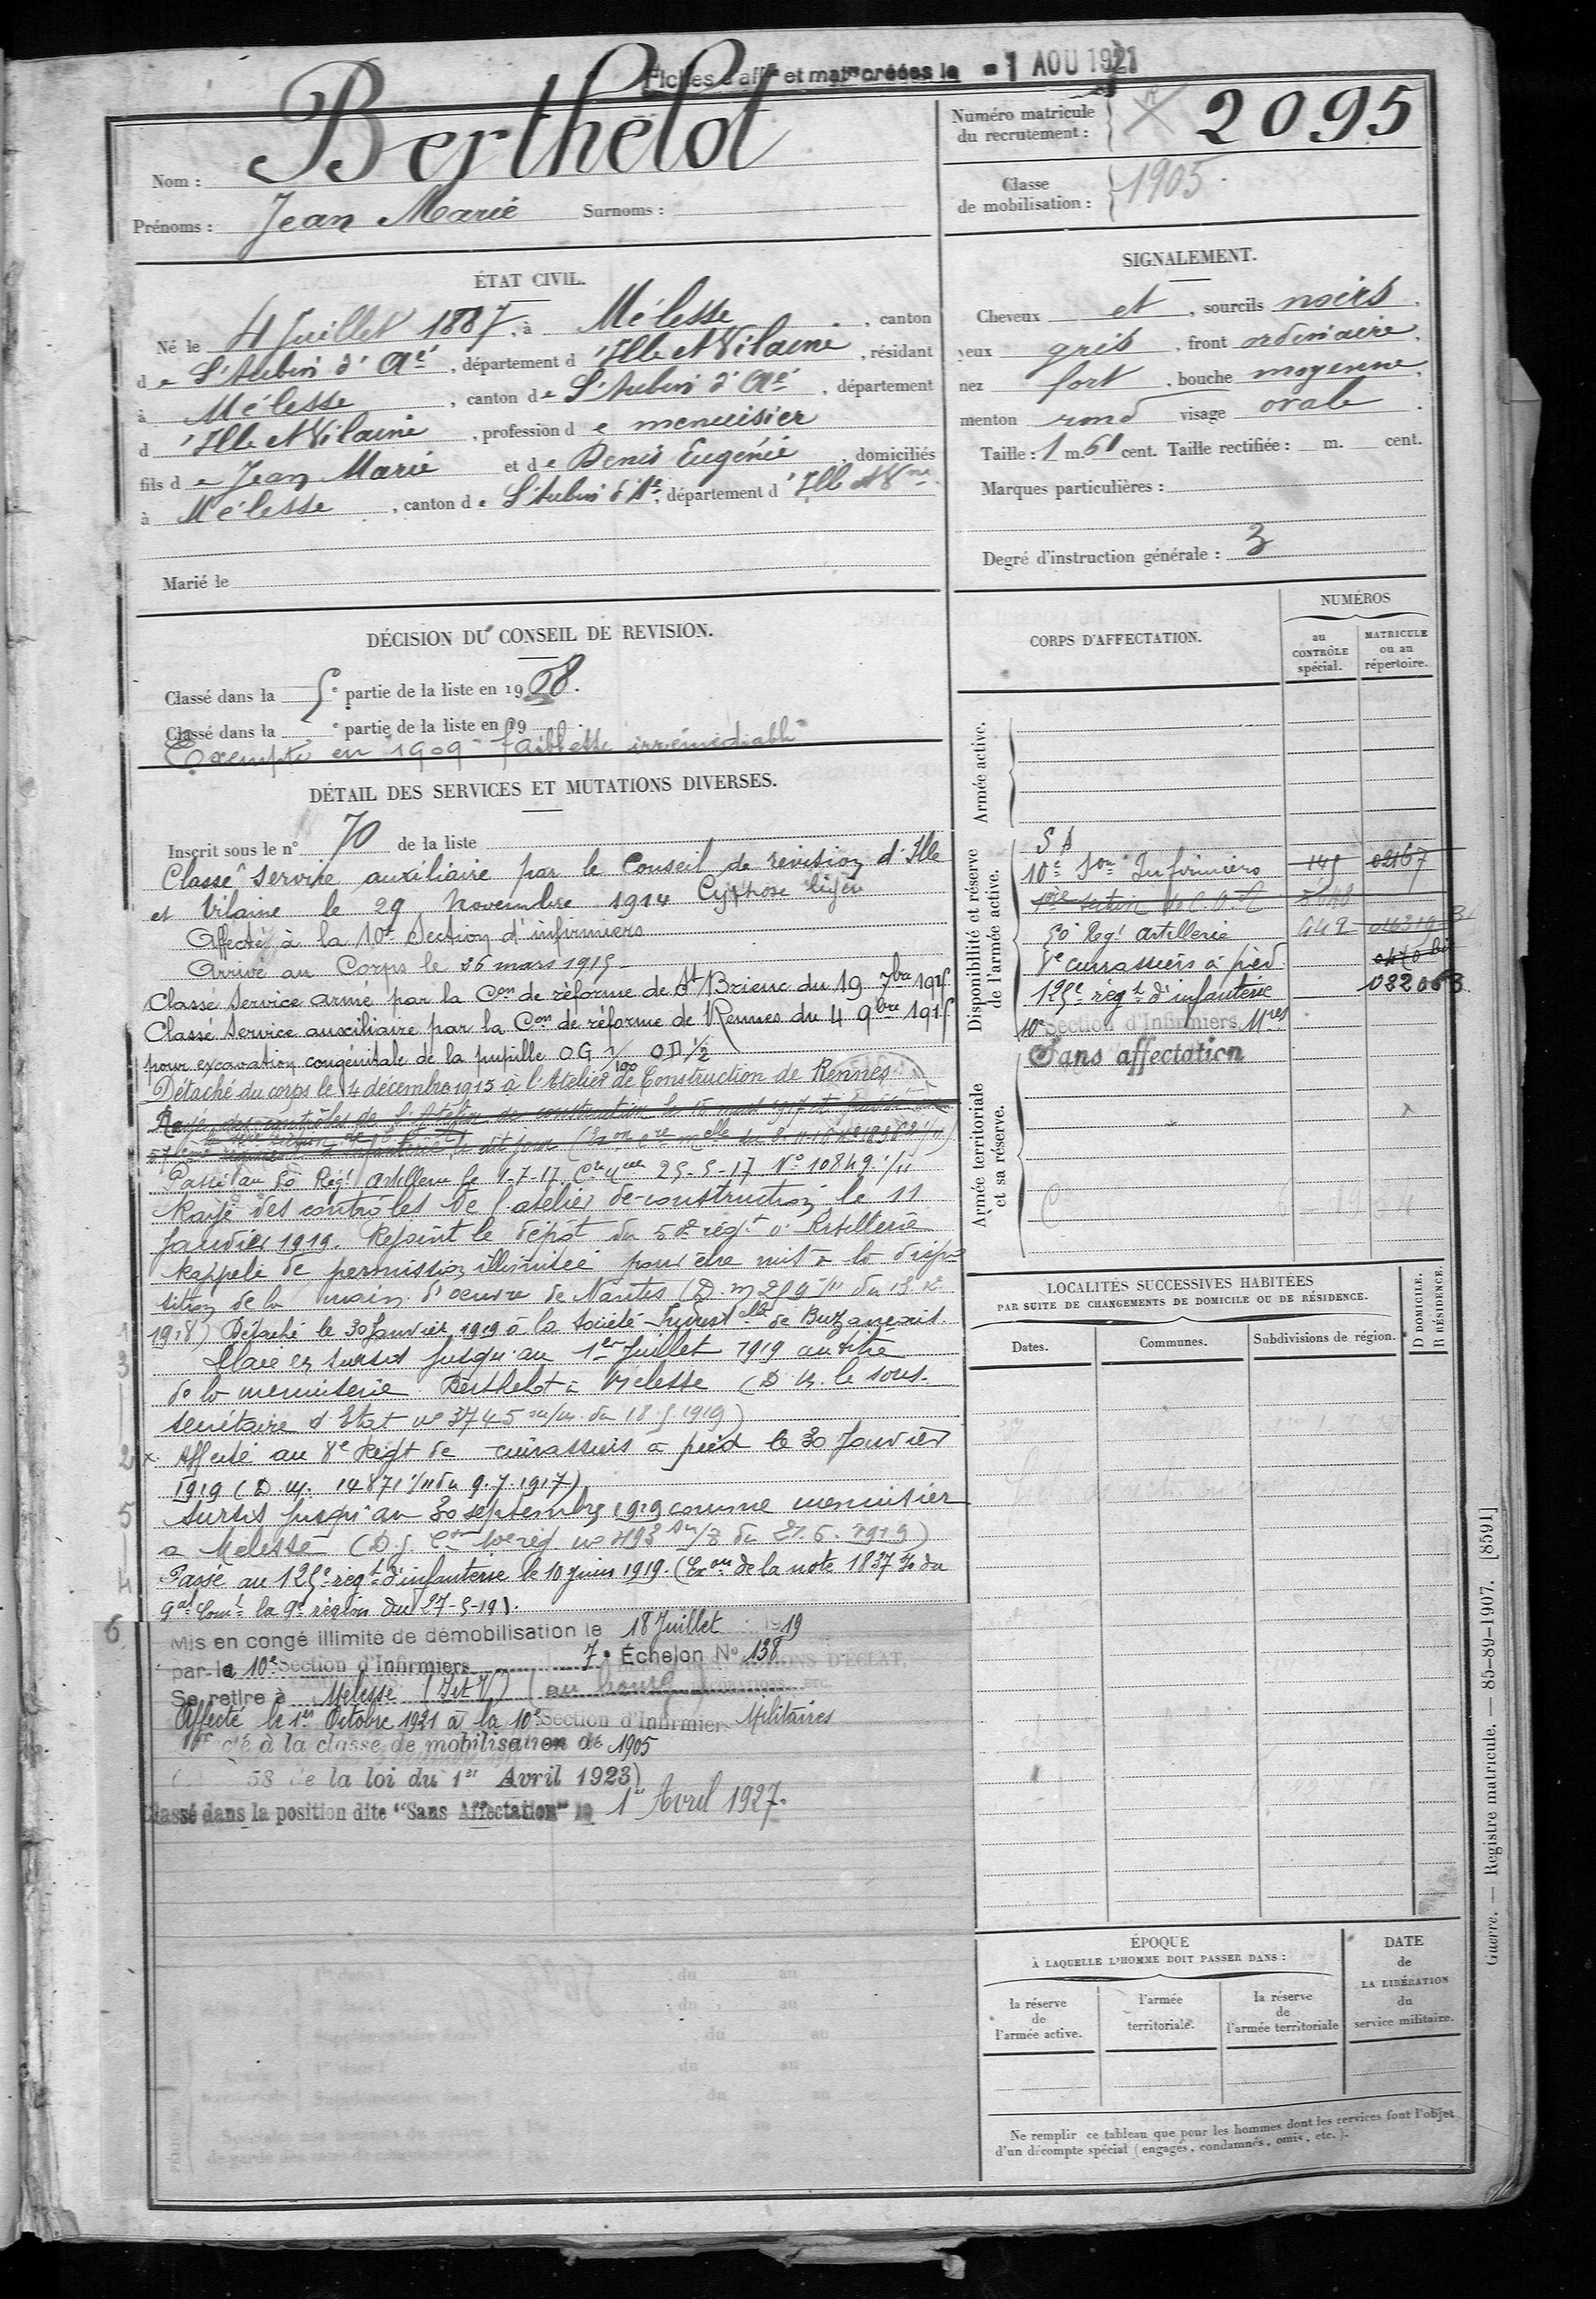 Fiches d'aff° et mat° créées le 1 AOU 1921
Nom : Berthelot
Prénoms : Jean Marie Surnoms :
Numéro matricule du recrutement : 2095
Classe de mobilisation : 1905
ÉTAT CIVIL.
Né le 4 Juillet 1887, à Mélesse, canton
de St Aubin d'Aé, département d'Ille et Vilaine, résidant
à Mélesse, canton de St Aubin d'Aé, département
d'Ille et Vilaine, profession de menuisier
fils de Jean Marie et de Denis Eugénie, domiciliés
à Mélesse, canton de St Aubin d'Ae, département d'Ille et Vne
Marié le
SIGNALEMENT.
Cheveux et, sourcils noirs,
yeux gris, front ordinaire,
nez fort, bouche moyenne,
menton rond visage ovale.
Taille : 1 m 61 cent. Taille rectifiée : m. cent.
Marques particulières :
Degré d'instruction générale : 3
DÉCISION DU CONSEIL DE REVISION.
Classé dans la 5e partie de la liste en 1908.
Classé dans la e partie de la liste en 19
Exempté en 1909 faiblesse irrémédiable
DÉTAIL DES SERVICES ET MUTATIONS DIVERSES.
Inscrit sous le n° 70 de la liste
Classé Service auxiliaire par le Conseil de révision d'Ille
et Vilaine le 29 Novembre 1914 Cyphose légère
Affecté à la 10e Section d'infirmiers
Arrivé au Corps le 26 mars 1915
Classé Service armé par la Con de réforme de St Brieuc du 19 7bre 1915
Classé Service auxiliaire par la Con de réforme de Rennes du 4 9bre 1915
pour excavation congénitale de la pupille OG 1/100 OD 1/2
Détaché du corps le 4 décembre 1915 à l'Atelier de Construction de Rennes
Rayé des contrôles de l'Atelier de construction le 15
Passé au 50 Régt Artillerie le 1-7-17 25-5-17 N° 10849 1/11
Rayé des contrôles de l'atelier de construction le 11
Janvier 1919. Rejoint le dépôt du 50e régt d'Artillerie
Rappelé de permission illimitée pour être mis à la dispo
sition de la main d'oeuvre de Nantes
1918) Détaché le 30 Janvier 1919 à la Société Indust elle de Buzançais.
3 Placé en sursis jusqu'au 1er Juillet 1919 au titre
de la menuiserie Berthelot à Melesse (D M. le sous-
secrétaire d'Etat n° 3745 du 18.5.1919)
2 x Affecté au 8e Régt de cuirassiers à pied le 30 Janvier
1919 (D. M. 14871 1/11 du 9.7.1917)
5 Sursis jusqu'au 30 septembre 1919 comme menuisier
à Melesse 10e rég n° 493 du 21.6.1919)
4 Passé au 125e regt d'infanterie le 10 juin 1919. (Exon de la note 1837 du
Gal Comt la 9e région du 27-5-19).
6 Mis en congé illimité de démobilisation le 18 Juillet 1919
par la 10e Section d'Infirmiers 7e Échelon No 138
Se retire à Melesse (I et V) (au bourg
Affecté le 1er Octobre 1921 à la 10e Section d'Infirmiers Militaires
à la classe de mobilisation de 1905
58 de la loi du 1er Avril 1923)
Classé dans la position dite "Sans Affectation" le 1er Avril 1927.
CORPS D'AFFECTATION.
NUMÉROS
au CONTRÔLE spécial.
MATRICULE ou au répertoire.
Armée active.
Disponibilité et réserve de l'armée active.
S A
10e Son Infirmiers 145 02167
50e Regt Artillerie 442
8e cuirassiers à pied
125e régt d'infanterie 022063
10e Section d'Infirmiers Mres
Sans affectation
Armée territoriale et sa réserve.
LOCALITÉS SUCCESSIVES HABITÉES
PAR SUITE DE CHANGEMENTS DE DOMICILE OU DE RÉSIDENCE.
Dates. Communes. Subdivisions de région.
D DOMICILE. R RÉSIDENCE.
ÉPOQUE
À LAQUELLE L'HOMME DOIT PASSER DANS :
la réserve de l'armée active.
l'armée territoriale.
la réserve de l'armée territoriale
DATE de LA LIBÉRATION du service militaire.
Ne remplir ce tableau que pour les hommes dont les services font l'objet
d'un décompte spécial (engagés, condamnés, omis, etc.).
Guerre. — Registre matricule. — 85-89-1907. [8591]